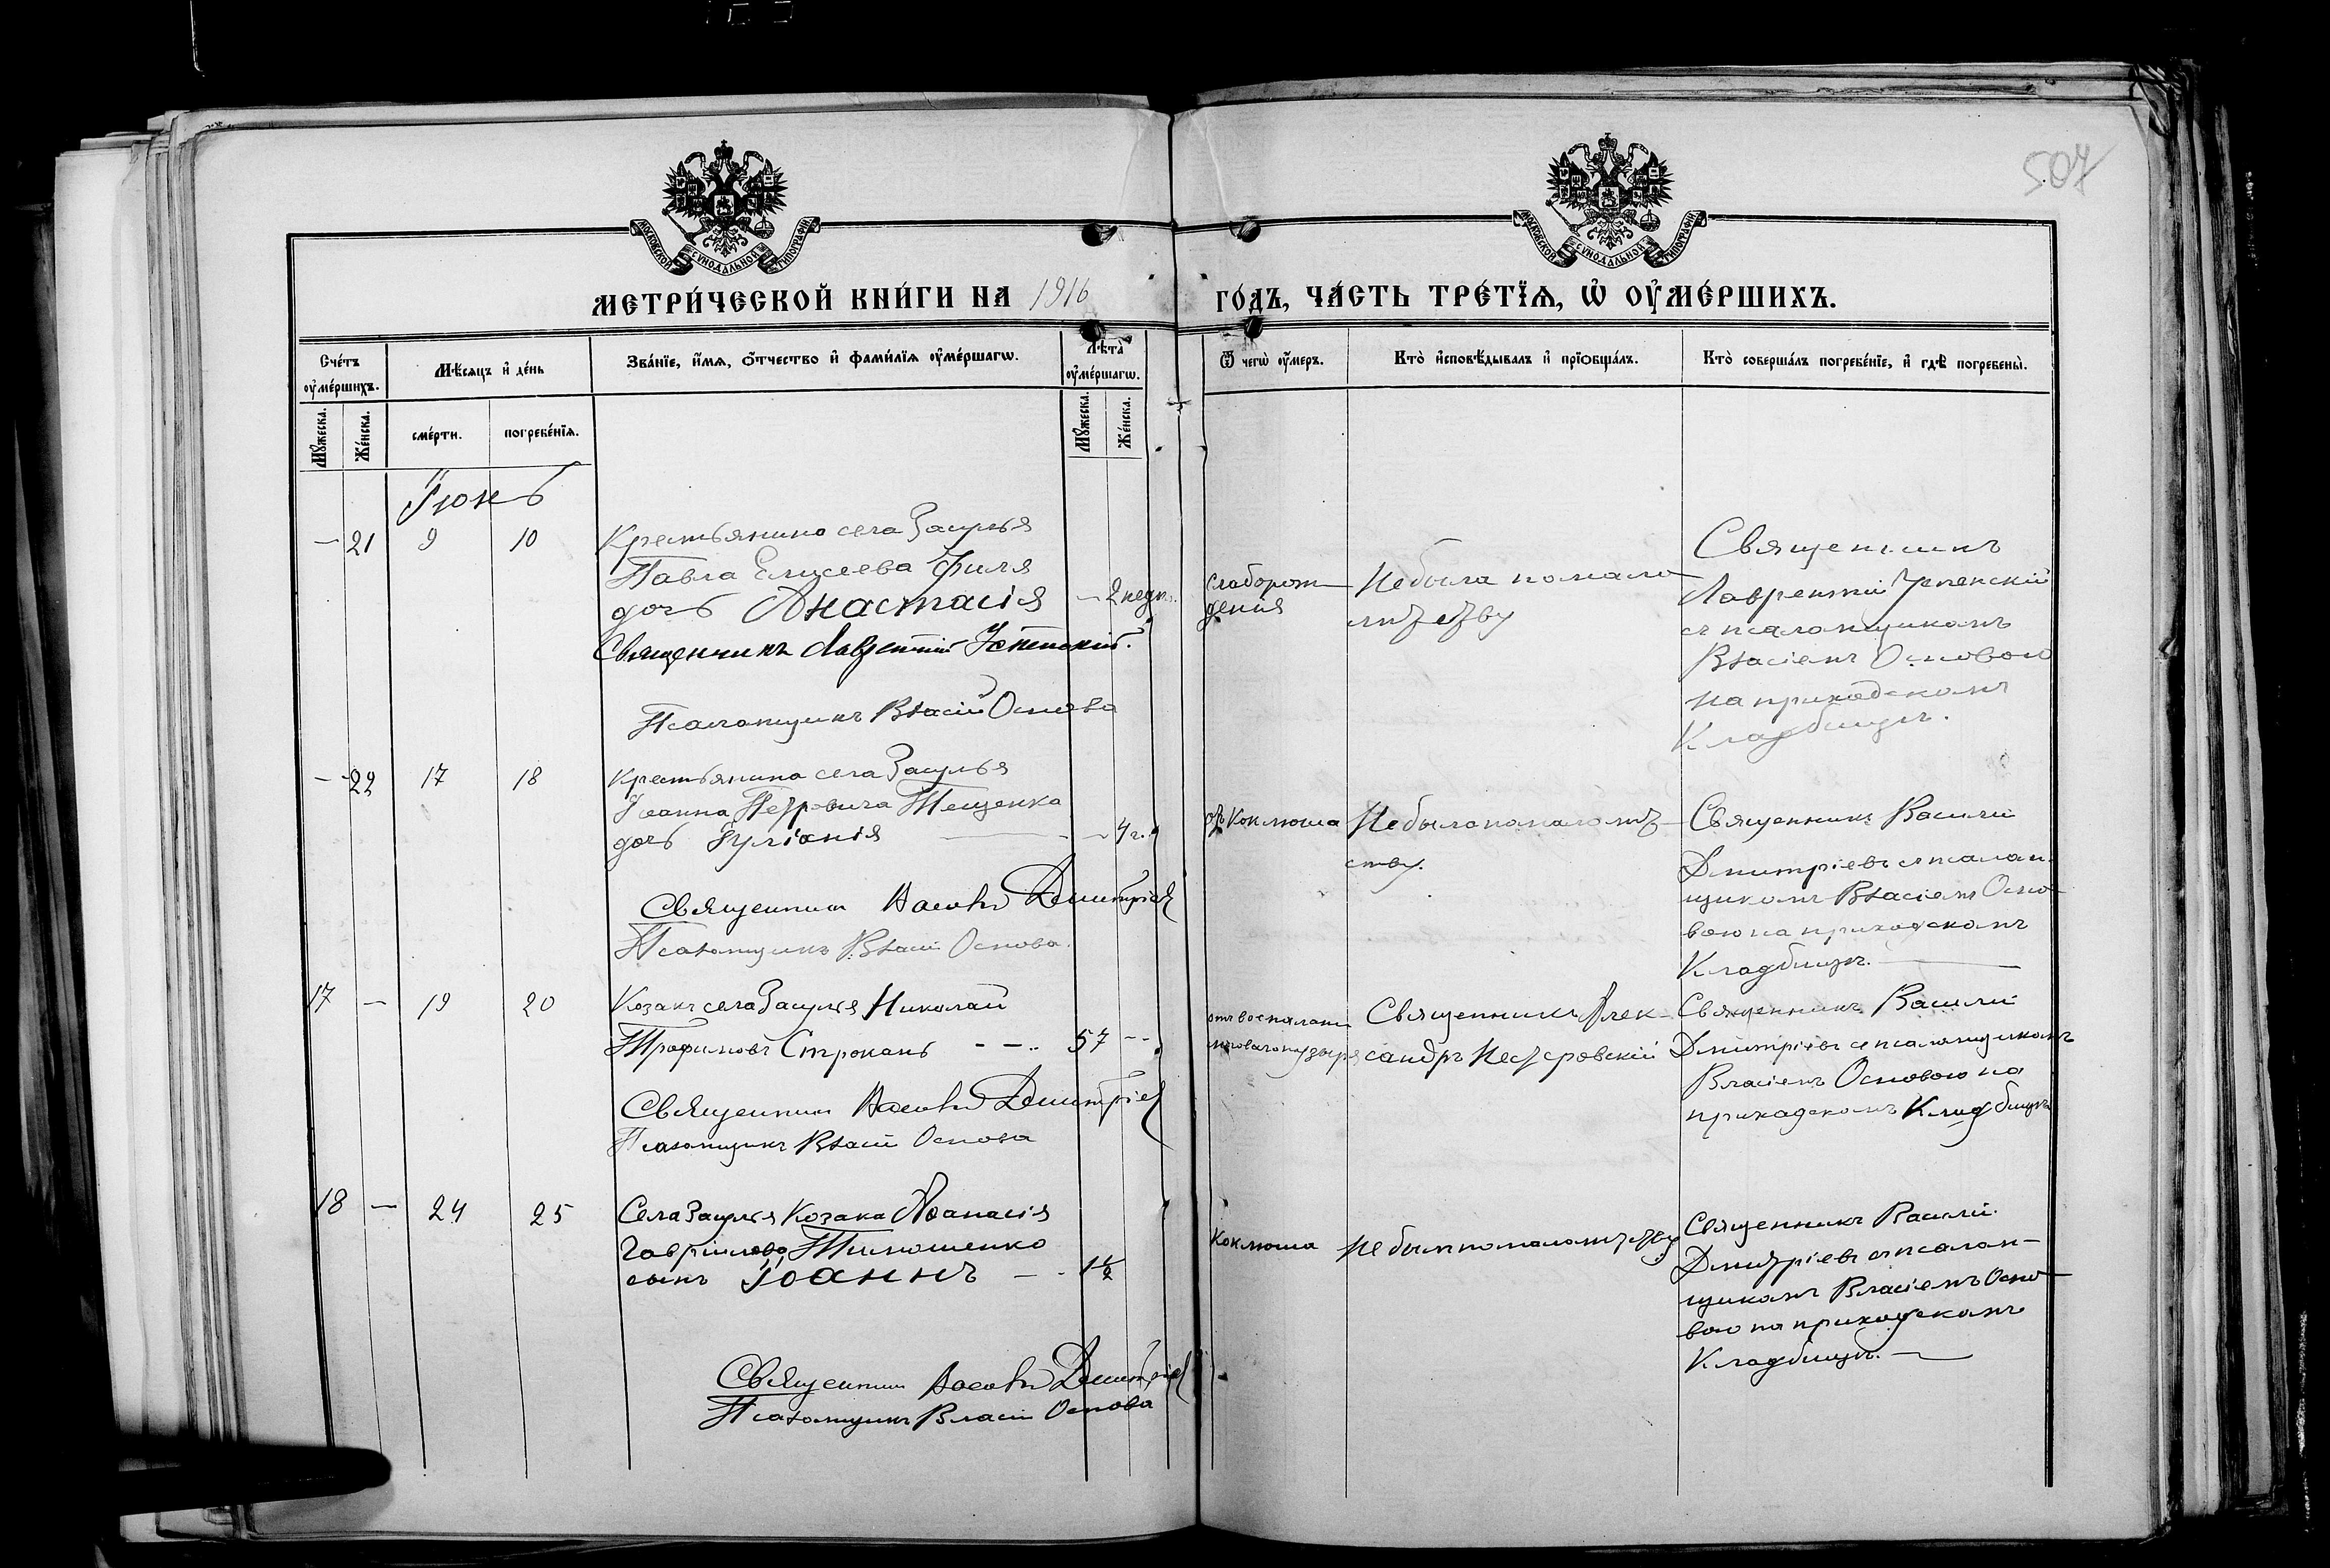 507
МОСКОВСКОЙ СѴНОДАЛЬНОЙ ТИПОГРАФІИ
МОСКОВСКОЙ СѴНОДАЛЬНОЙ ТИПОГРАФІИ
МЕТРИ́ЧЕСКОЙ КНИ́ГИ НА 1916 ГО́ДЪ, ЧА́СТЬ ТРЕ́ТЇѦ, Ѡ҆ ОУ҆МЕ́РШИХЪ.
Сче́тъ оу҆ме́ршихъ.
Мꙋ́жеска.
Же́нска.
Мѣ́сяцъ и҆ де́нь
сме́рти.
погребе́нїѧ.
Зва́нїе, и҆́мѧ, ѻ҆́тчество и҆ фами́лїѧ оу҆ме́ршагѡ.
Лѣ́та оу҆ме́ршагѡ.
Мꙋ́жеска.
Же́нска.
Ѿ чегѡ̀ оу҆́меръ.
Кто̀ и҆сповѣ́дывалъ и҆ прїѡбща́лъ.
Кто̀ соверша́лъ погребе́нїе, и҆ гдѣ̀ погребены̀.
Іюнь
— 21 9 10
Крестьянина села Засулья
Павла Елисеева Филя
дочь Анастасія — 2 недѣ.
Священникъ Лаврентій Успенскій.
Псаломщикъ Власій Основа
Слаборож-
денія
Не была по мало-
лѣтству
Священникъ
Лаврентій Успенскій
съ псаломщикомъ
Власіемъ Основою
на приходскомъ
Кладбищѣ.
— 22 17 18
Крестьянина села Засулья
Іоанна Петровича Тещенка
дочь Іуліанія — 4 г.
Священникъ Василій Димитріев
Псаломщикъ Власій Основа.
отъ Коклюша
Не была по малолѣт-
ству.
Священникъ Василій
Димитріевъ съ псалом-
щикомъ Власіемъ Осно-
вою на приходскомъ
Кладбищѣ.
17 — 19 20
Козакъ села Засулья Николай
Трофимовъ Строкань 57 —
Священникъ Василій Димитріев
Псаломщикъ Власій Основа
отъ воспаленія
мочевого пузыря
Священникъ Алек-
сандръ Нестеровскій
Священникъ Василій
Димитріевъ съ псаломщикомъ
Власіемъ Основою на
приходскомъ Кладбищѣ
18 — 24 25
Села Засулья Козака Аѳанасія
Гавріилова Тимошенко
сынъ Іоаннъ — 1½
Священникъ Василій Димитріев
Псаломщикъ Власій Основа
Коклюша
Не былъ по малолѣтству
Священникъ Василій
Димитріевъ съ псалом-
щикомъ Власіемъ Осно-
вою на приходскомъ
Кладбищѣ.